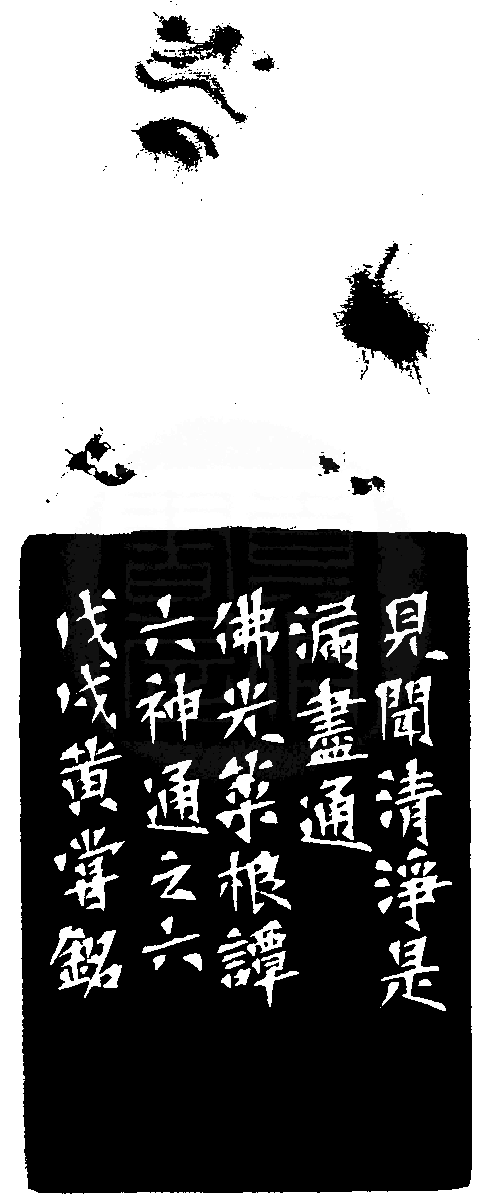 見聞清淨是
漏盡通
佛光菜根譚
六神通之六
戊戌黄嘗銘